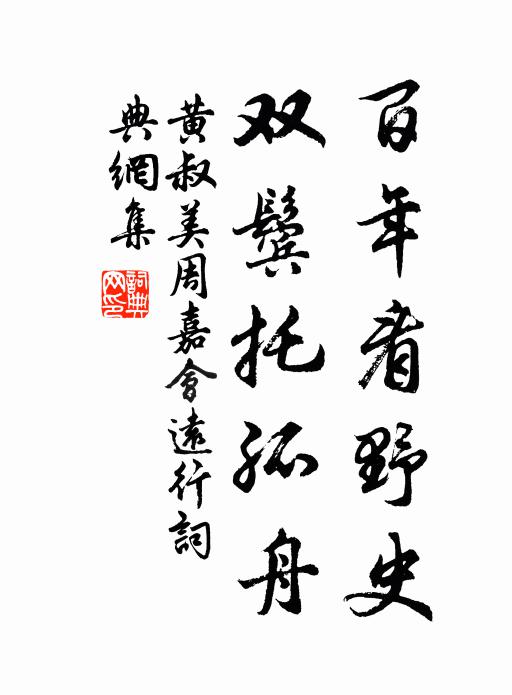 百年看野史
双鬓托孤舟
黄叔美周嘉會遠行詞
典網集
詞典网印